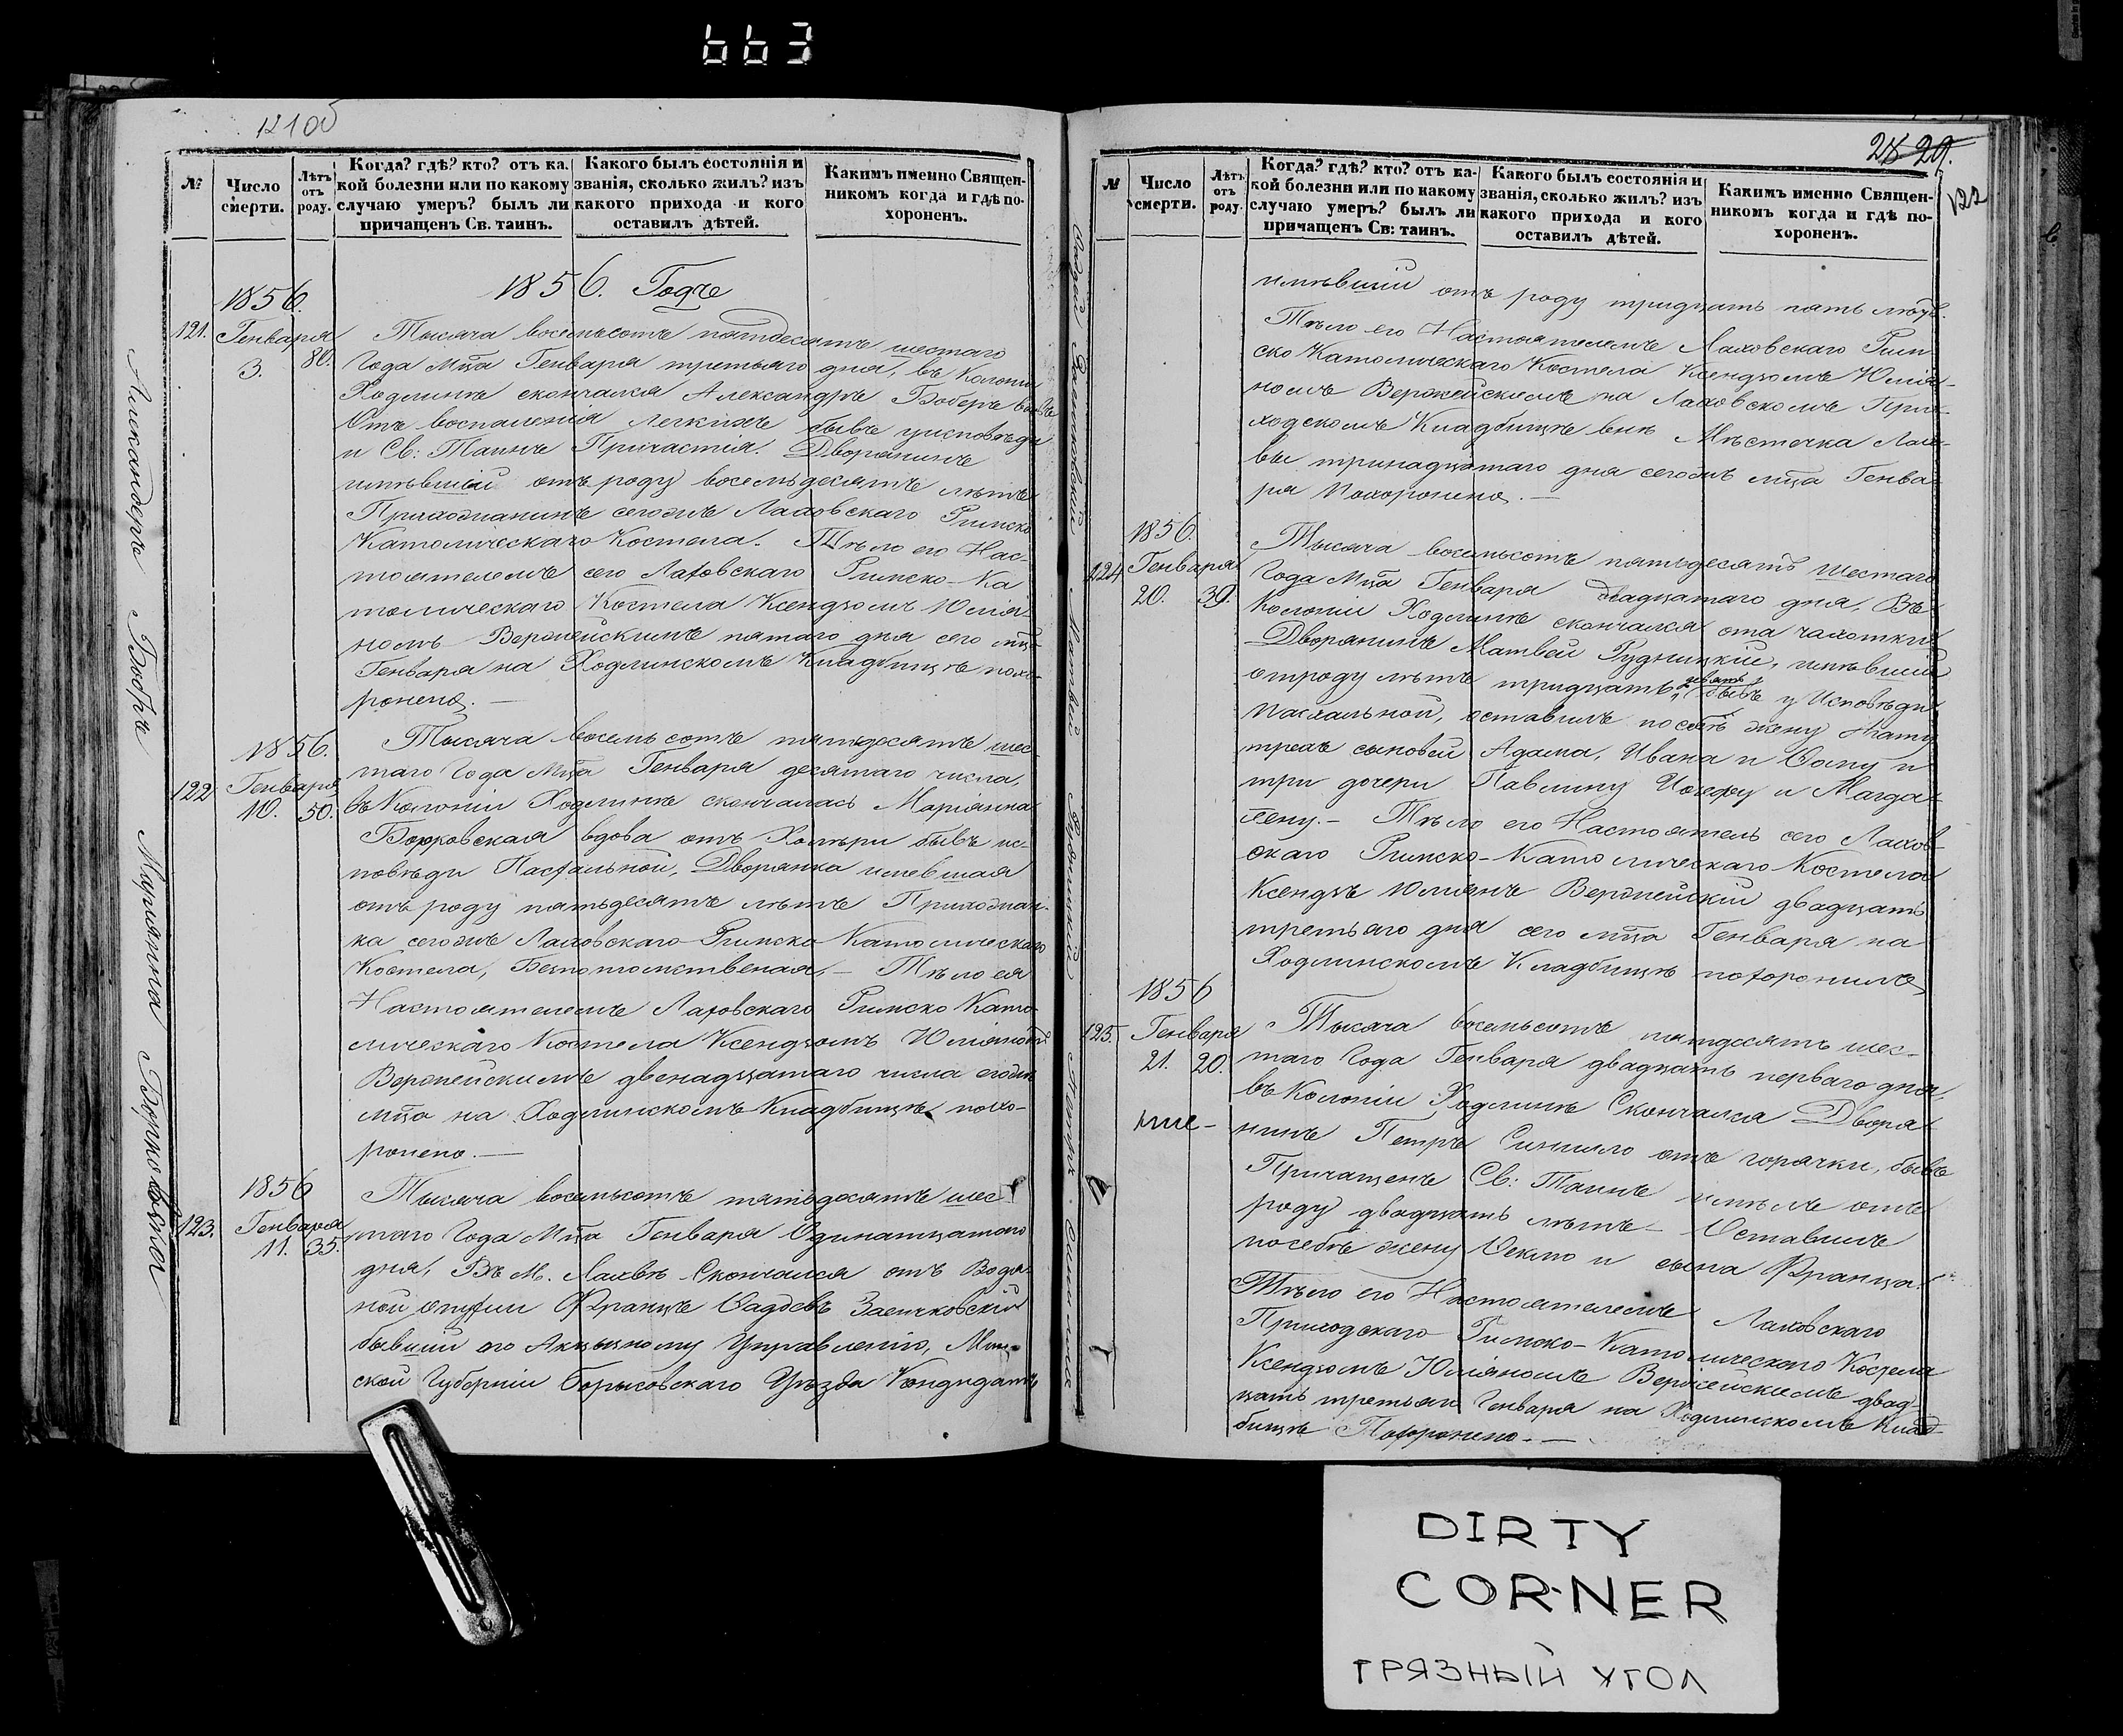 663
121 об
№
Число смерти.
Лѣтъ отъ роду.
Когда? гдѣ? кто? отъ ка-
кой болезни или по какому
случаю умеръ? былъ ли
причащенъ Св. таинъ.
Какого былъ состоянія и
званія, сколько жилъ? изъ
какого прихода и кого
оставилъ дѣтей.
Какимъ именно Священ-
никомъ когда и гдѣ по-
хороненъ.
1856. Года
1856.
121. Генваря
3. 80.
Тысяча восемьсотъ пятдесятъ шестаго
Года Мца Генваря третьяго дня, въ Колоніи
Ходлинѣ скончался Александръ Боберъ
Отъ воспаленія легкихъ бывъ уисповѣди
и Св: Таинъ Причастія. Дворянинъ
имѣвшій отъ роду восемьдесятъ лѣтъ
Прихожанинъ сегожъ Лаховскаго Римско
Католическаго Костела. Тѣло его Нас-
тоятелемъ сего Лаховскаго Римско-Ка
толическаго Костела Ксендзомъ Юлія-
номъ Вержейскимъ пятаго дня сего мца
Генваря на Ходлинскомъ Кладбищѣ похо-
ронено.
1856.
122 Генваря
10. 50.
Тысяча восемь сотъ пятьдесятъ шес-
таго Года Мца Генваря десятаго числа,
въ Колоніи Ходлинѣ скончалась Маріянна
Борковская вдова отъ Холеры бывъ ис-
повѣди Пасхальной, Дворянка имевшая
отъ роду пятьдесятъ лѣтъ Прихожан-
ка сегожъ Лаховскаго Римско Католическаго
Костела, Безпотомственая, — Тѣло ея
Настоятелемъ Лаховскаго Римско Като-
лическаго Костела Ксендзомъ Юліяномъ
Вержейскимъ двенадцатаго числа сегожъ
мца на Ходлинскомъ Кладбищѣ похо-
ронено.
1856
123. Генваря
11. 35.
Тысяча восемьсотъ пятьдесятъ шес-
таго Года Мца Генваря Одинатцатаго
дня, Въ М. Лахвѣ Скончался отъ Водя-
ной опухли Францъ Фадѣевъ Заенчковскій
бывшій по Акцызному Управленію, Мин-
ской Губерніи Борысовскаго Уѣзда Кондидатъ
Александеръ Бобръ
Маріянна Борковская
28 29.
122
№
Число смерти.
Лѣтъ отъ роду.
Когда? гдѣ? кто? отъ ка-
кой болезни или по какому
случаю умеръ? былъ ли
причащенъ Св: таинъ.
Какого былъ состоянія и
званія, сколько жилъ? изъ
какого прихода и кого
оставилъ дѣтей.
Какимъ именно Священ-
никомъ когда и гдѣ по-
хороненъ.
имѣвшій отъ роду тридцать пять лѣтъ.
Тѣло его Настоятелемъ Лаховскаго Рим-
ско Католическаго Костела Ксендзомъ Юлія-
номъ Вержейскимъ на Лаховскомъ При-
ходскомъ Кладбищѣ внѣ Мѣстечка Лах-
вы тринадцатаго дня сегожъ мца Генва-
ря Похоронено.
1856.
124 Генваря
20. 39.
Тысяча восемьсотъ пятьдесятъ шестаго
Года Мца Генваря двадцатаго дня. Въ
Колоніи Ходлинѣ скончался отъ чахотки
Дворянинъ Матвей Рудницкій, имѣвшій
отроду лѣтъ тридцать девять бывъ у Исповѣди
Пасхальной, оставилъ по себѣ жену Агату
трехъ сыновей Адама, Ивана и Фому и
три дочери Павлину Іозефу и Магда-
лену. — Тѣло его Настоятель сего Лахов-
скаго Римско-Католическаго Костела
Ксендзъ Юліянъ Вержейскій двадцать
третьяго дня сего мца Генваря на
Ходлинскомъ Кладбищѣ похоронилъ
1856
125. Генваря
21. 20.
Тысяча восемьсотъ пятдесятъ шес-
таго Года Генваря двадцать перваго дня,
въ Колоніи Ходлинѣ Скончался Дворя-
нинъ Петръ Синило отъ горячки, бывъ
Причащенъ Св: Таинъ имѣлъ отъ
роду двадцать лѣтъ — Оставилъ
посебѣ жену Феклю и сына Франца.
Тѣло его Настоятелемъ Лаховскаго
Приходскаго Римско-Католическаго Костела
Ксендзомъ Юліяномъ Вержейскимъ двад-
цать третьяго Генваря на Ходлинскомъ Клад-
бищѣ Похоронено.
DIRTY
CORNER
ГРЯЗНЫЙ УГОЛ